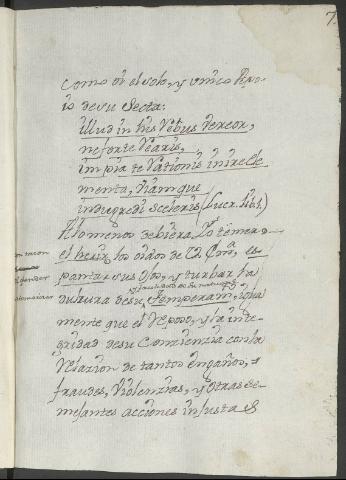 7
como si el solo, y unico
de su Secta:
Illud in his rebus vereor,
ne forte rearis,
impia te rationis inire ele
menta, viam que
indugredi sceleris (Lucr. lib. 1.)
Alomenos debiera, Yo temer
el herir los oidos de
pantar sus ojos, y turbar la
dulzura de su temperam.to,
mente que el reposo, y la inte-
gridad de su Conzienzia con la
relazion de tantos engaños,
fraudes, violenzias, y otras se-
mejantes acciones injustas